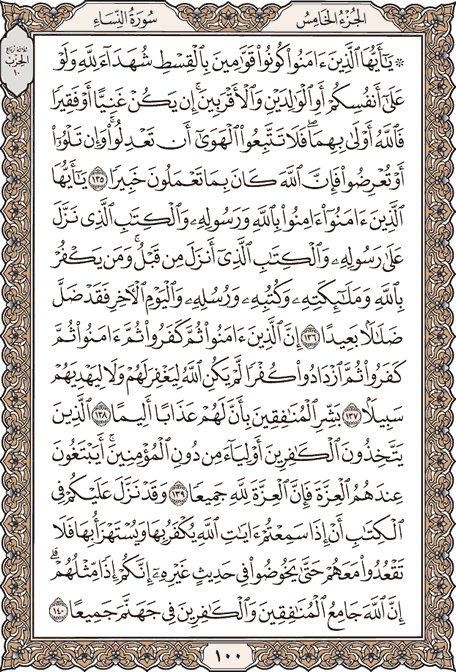 الجزء الخامس
سورة النساء
ثلاثة أرباع
الحزب
١٠
۞ يَٰٓأَيُّهَا ٱلَّذِينَ ءَامَنُوا۟ كُونُوا۟ قَوَّٰمِينَ بِٱلْقِسْطِ شُهَدَآءَ لِلَّهِ وَلَوْ
عَلَىٰٓ أَنفُسِكُمْ أَوِ ٱلْوَٰلِدَيْنِ وَٱلْأَقْرَبِينَ ۚ إِن يَكُنْ غَنِيًّا أَوْ فَقِيرًا
فَٱللَّهُ أَوْلَىٰ بِهِمَا ۖ فَلَا تَتَّبِعُوا۟ ٱلْهَوَىٰٓ أَن تَعْدِلُوا۟ ۚ وَإِن تَلْوُۥٓا۟
أَوْ تُعْرِضُوا۟ فَإِنَّ ٱللَّهَ كَانَ بِمَا تَعْمَلُونَ خَبِيرًا ١٣٥ يَٰٓأَيُّهَا
ٱلَّذِينَ ءَامَنُوٓا۟ ءَامِنُوا۟ بِٱللَّهِ وَرَسُولِهِۦ وَٱلْكِتَٰبِ ٱلَّذِى نَزَّلَ
عَلَىٰ رَسُولِهِۦ وَٱلْكِتَٰبِ ٱلَّذِىٓ أَنزَلَ مِن قَبْلُ ۚ وَمَن يَكْفُرْ
بِٱللَّهِ وَمَلَٰٓئِكَتِهِۦ وَكُتُبِهِۦ وَرُسُلِهِۦ وَٱلْيَوْمِ ٱلْءَاخِرِ فَقَدْ ضَلَّ
ضَلَٰلًۢا بَعِيدًا ١٣٦ إِنَّ ٱلَّذِينَ ءَامَنُوا۟ ثُمَّ كَفَرُوا۟ ثُمَّ ءَامَنُوا۟ ثُمَّ
كَفَرُوا۟ ثُمَّ ٱزْدَادُوا۟ كُفْرًا لَّمْ يَكُنِ ٱللَّهُ لِيَغْفِرَ لَهُمْ وَلَا لِيَهْدِيَهُمْ
سَبِيلًۢا ١٣٧ بَشِّرِ ٱلْمُنَٰفِقِينَ بِأَنَّ لَهُمْ عَذَابًا أَلِيمًا ١٣٨ ٱلَّذِينَ
يَتَّخِذُونَ ٱلْكَٰفِرِينَ أَوْلِيَآءَ مِن دُونِ ٱلْمُؤْمِنِينَ ۚ أَيَبْتَغُونَ
عِندَهُمُ ٱلْعِزَّةَ فَإِنَّ ٱلْعِزَّةَ لِلَّهِ جَمِيعًا ١٣٩ وَقَدْ نَزَّلَ عَلَيْكُمْ فِى
ٱلْكِتَٰبِ أَنْ إِذَا سَمِعْتُمْ ءَايَٰتِ ٱللَّهِ يُكْفَرُ بِهَا وَيُسْتَهْزَأُ بِهَا فَلَا
تَقْعُدُوا۟ مَعَهُمْ حَتَّىٰ يَخُوضُوا۟ فِى حَدِيثٍ غَيْرِهِۦٓ ۚ إِنَّكُمْ إِذًا مِّثْلُهُمْ ۗ
إِنَّ ٱللَّهَ جَامِعُ ٱلْمُنَٰفِقِينَ وَٱلْكَٰفِرِينَ فِى جَهَنَّمَ جَمِيعًا ١٤٠
١٠٠